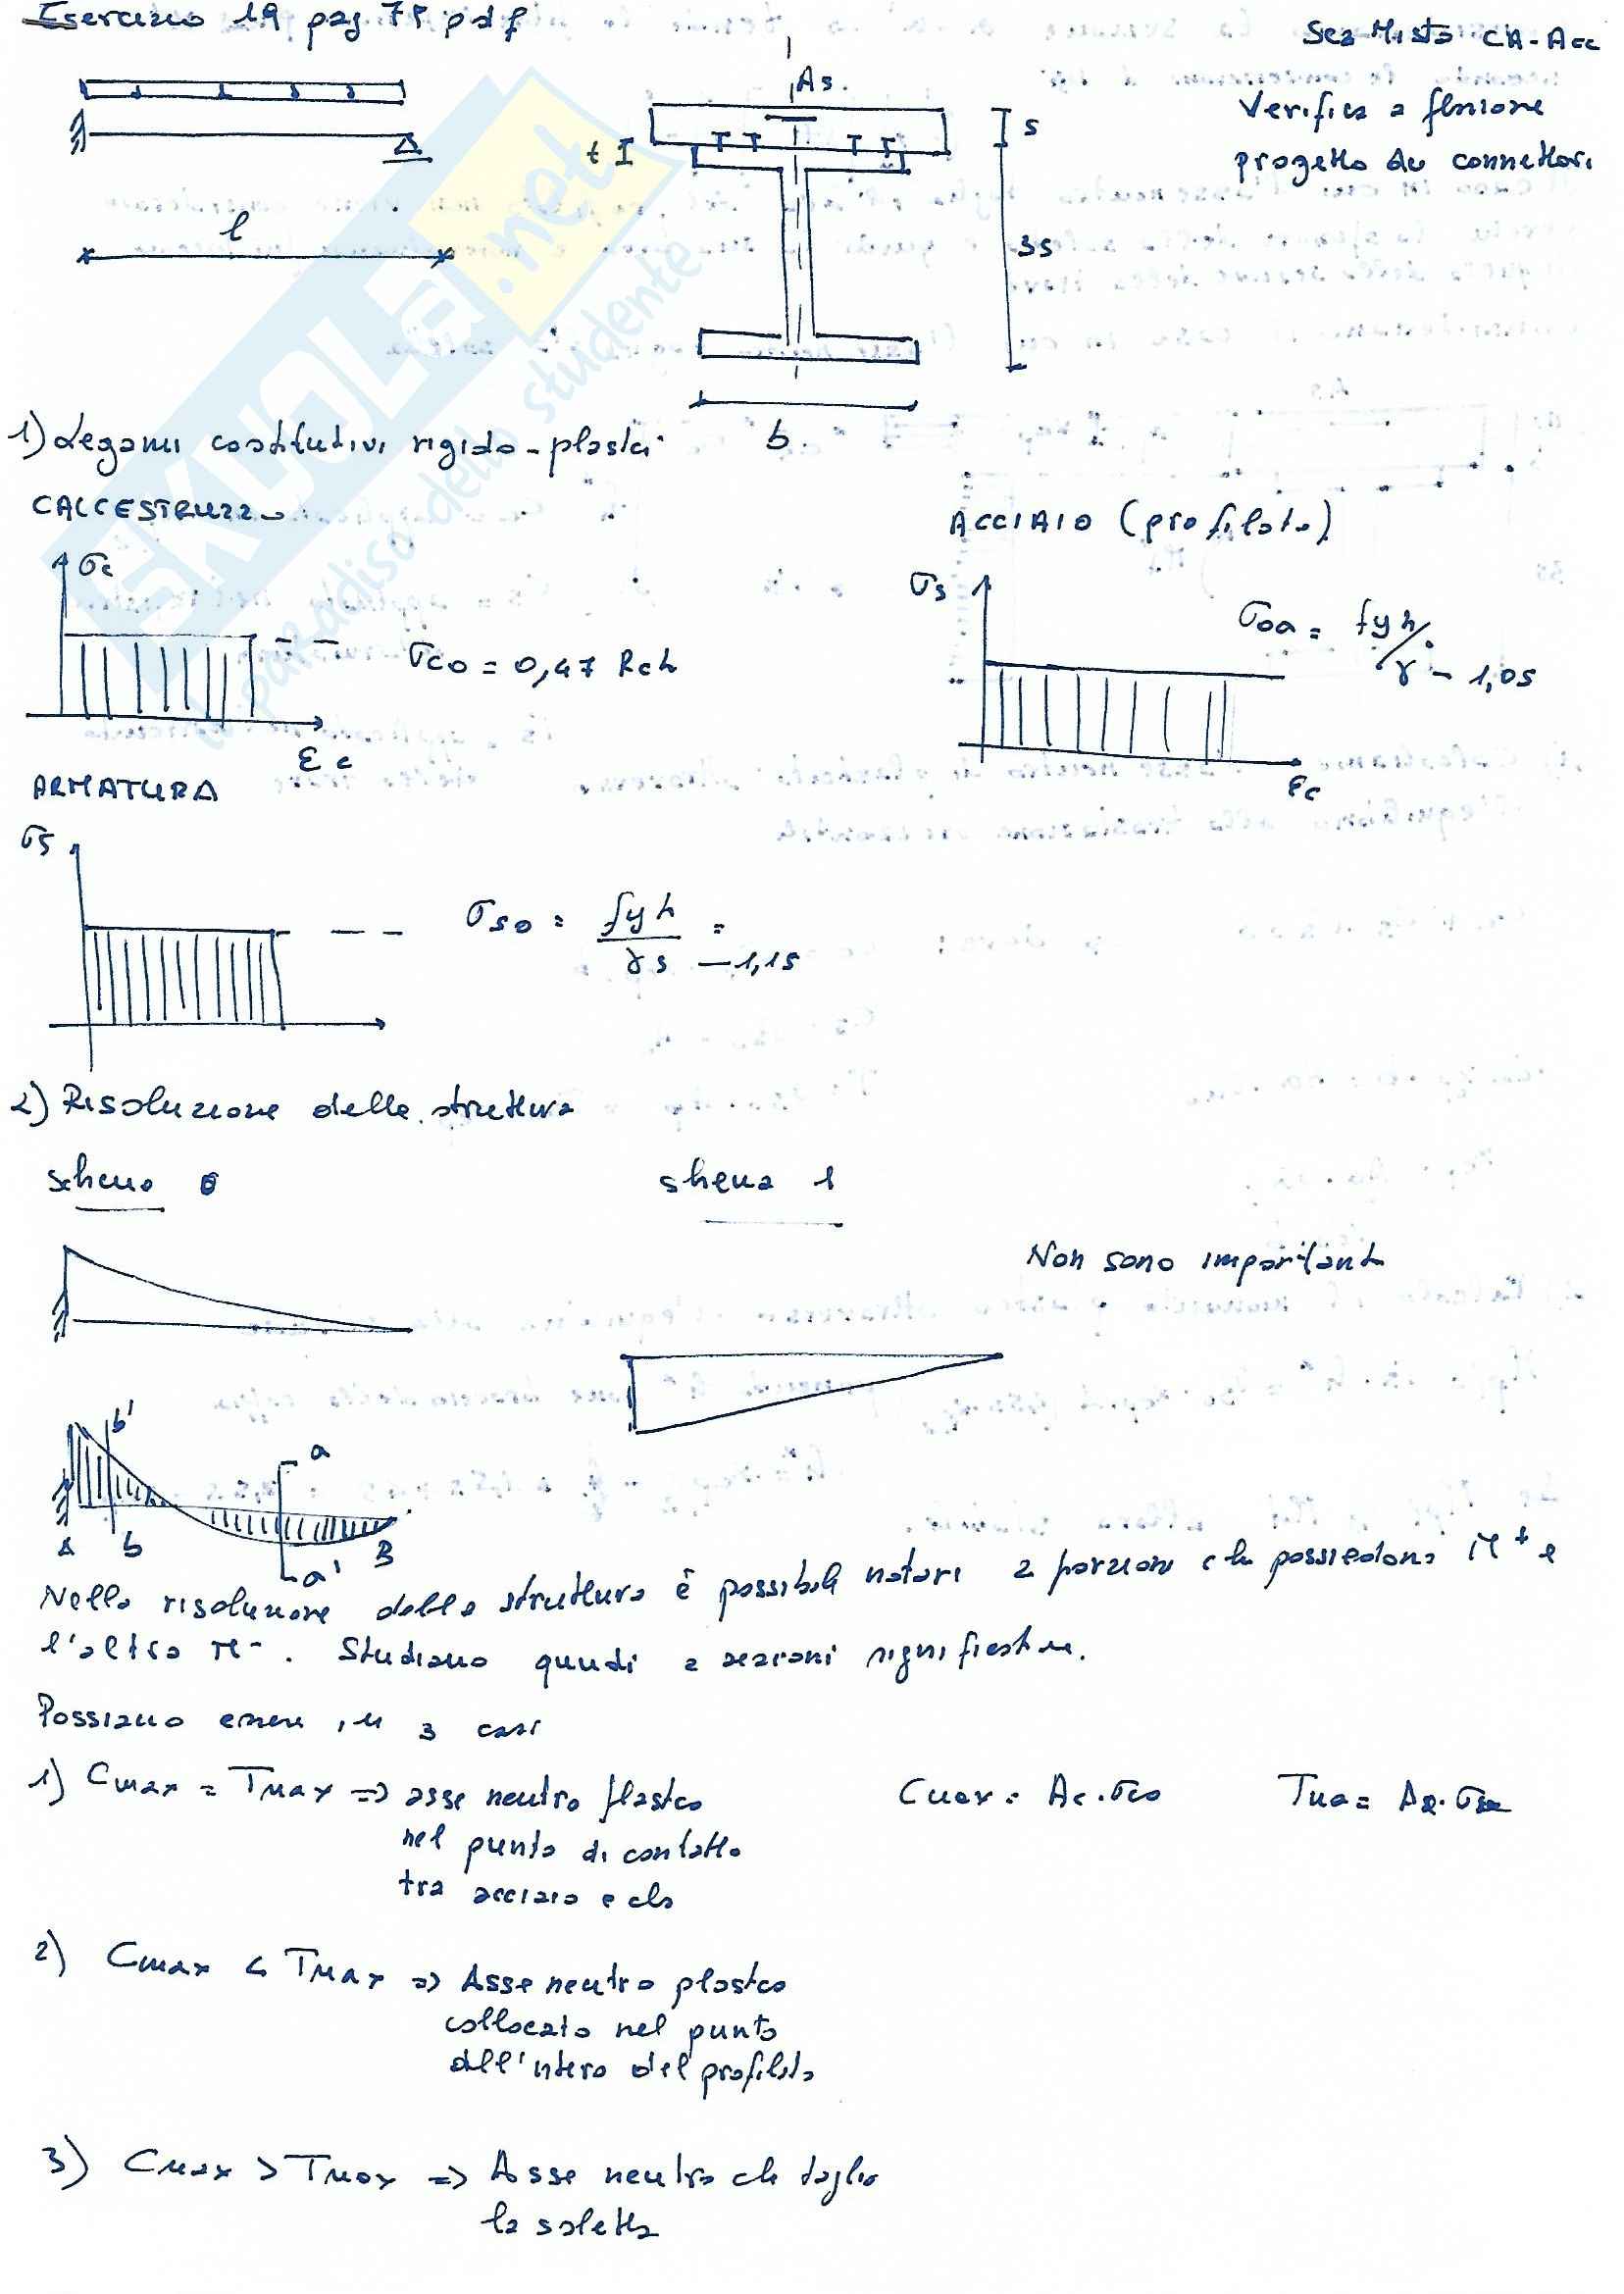 Esercizio 19 pag 75 pdf
Sez Mista CA-Acc
Verifica a flessione
progetto dei connettori
As.
s
t
3s
l
b
1) Legami costitutivi rigido-plastici
CALCESTRUZZO
ACCIAIO (profilato)
σc
σc0 = 0,47 Rck
εc
σs
σ0a = fyk/γ - 1,05
εc
ARMATURA
σs
σs0 = fyk/γs = - 1,15
2) Risoluzione delle struttura
schema 0
shema 1
Non sono importanti
b'
a
A
b
a'
B
Nella risoluzione della struttura è possibile notare 2 porzioni che possiedono M+ e
l'altra M-. Studiamo quindi 2 sezioni significative.
Possiamo essere in 3 casi
1) Cmax = Tmax => asse neutro plastico
nel punto di contatto
tra acciaio e cls
Cmax = Ac·σc0
2) Cmax < Tmax => Asse neutro plastco
collocato nel punto
all'intero del profilato
3) Cmax > Tmax => Asse neutro che taglia
la soletta
SKUOLA.net
paradiso dello studente